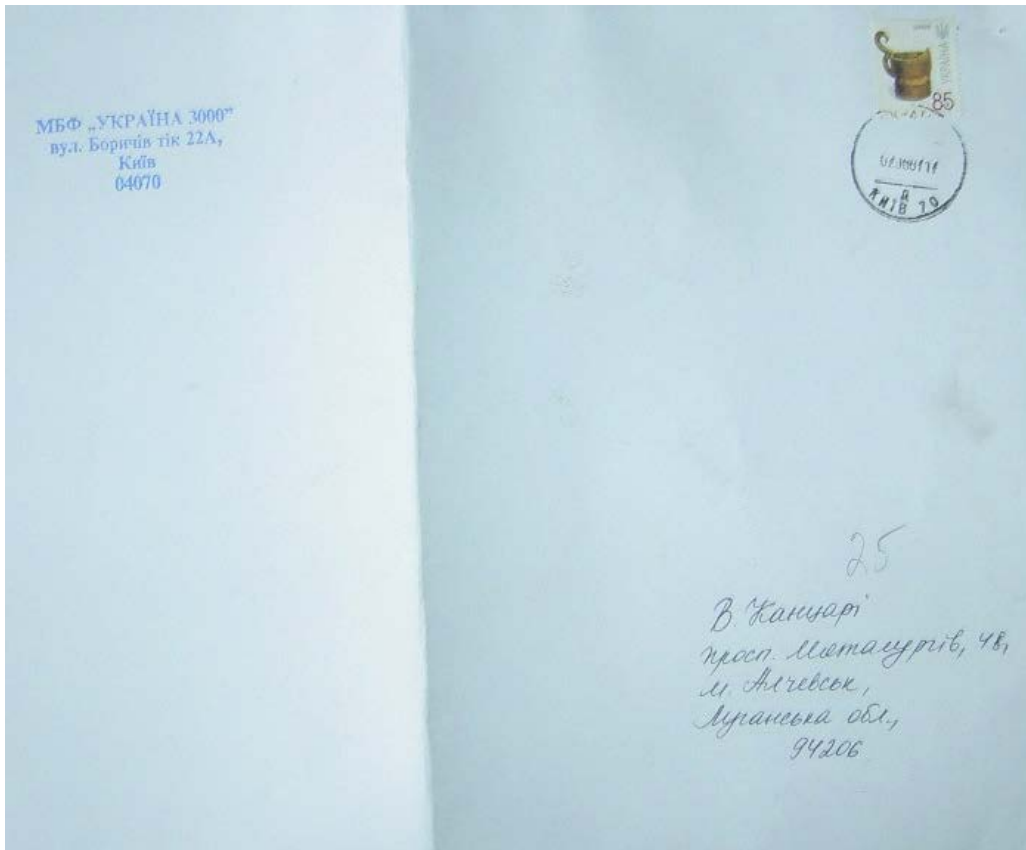 МБФ „УКРАЇНА 3000”
вул. Боричів тік 22А,
Київ
04070
УКРАЇНА
85
КИЇВ 70
25
В. Канцарі
просп. Металургів, 4В,
м. Алчевськ,
Луганська обл.,
94206